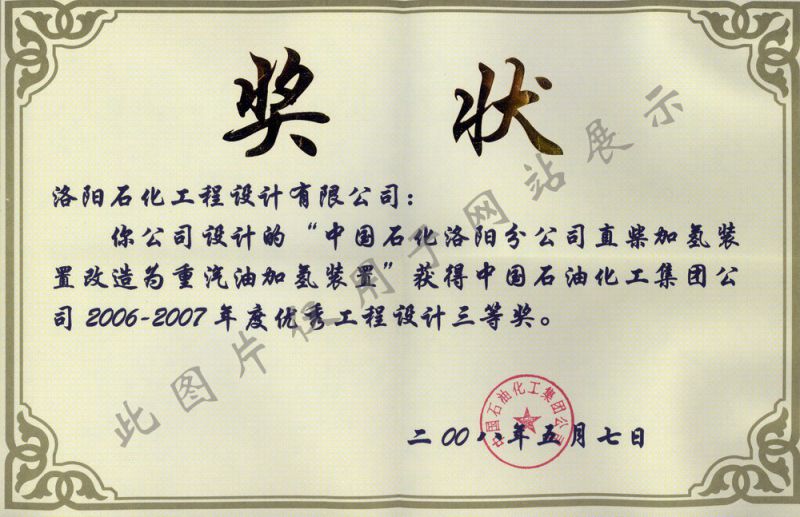 奖 状
洛阳石化工程设计有限公司：
你公司设计的“中国石化洛阳分公司直柴加氢装
置改造为重汽油加氢装置”获得中国石油化工集团公
司2006-2007年度优秀工程设计三等奖。
中国石油化工集团公司
二〇〇八年五月七日
此图片仅用于网站展示